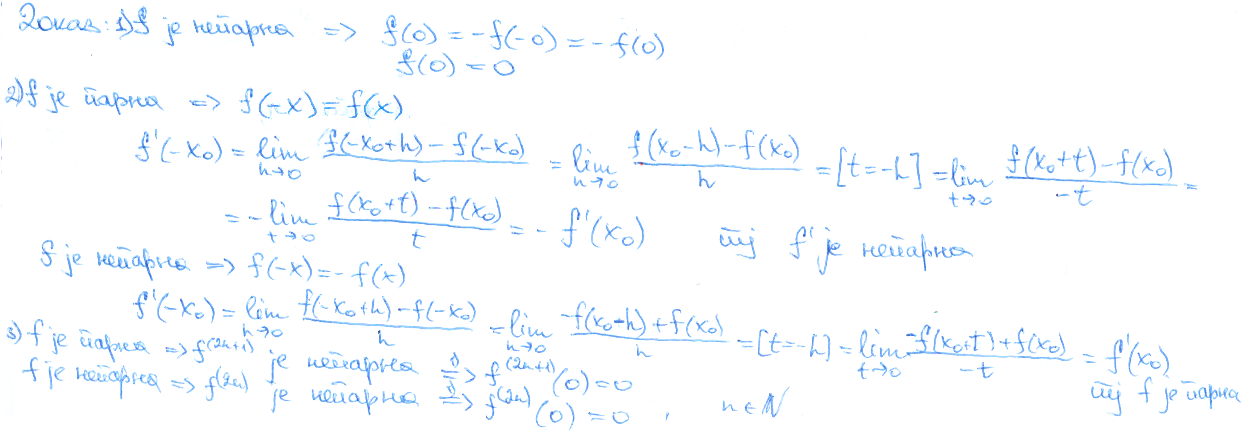 Доказ: 1) f је непарна => f(0) = -f(-0) = -f(0)
f(0) = 0
2) f је парна => f(-x) = f(x)
f'(-x₀) = lim_{h→0} (f(-x₀+h) - f(-x₀))/h = lim_{h→0} (f(x₀-h) - f(x₀))/h = [t=-h] = lim_{t→0} (f(x₀+t) - f(x₀))/(-t) =
= -lim_{t→0} (f(x₀+t) - f(x₀))/t = - f'(x₀) тј f' је непарна
f је непарна => f(-x) = -f(x)
f'(-x₀) = lim_{h→0} (f(-x₀+h) - f(-x₀))/h = lim_{h→0} (-f(x₀-h) + f(x₀))/h = [t=-h] = lim_{t→0} (-f(x₀+t) + f(x₀))/(-t) = f'(x₀)
тј f је парна
3) f је парна => f^(2n+1) је непарна =1)=> f^(2n+1)(0) = 0
f је непарна => f^(2n) је непарна =1)=> f^(2n)(0) = 0, n∈N